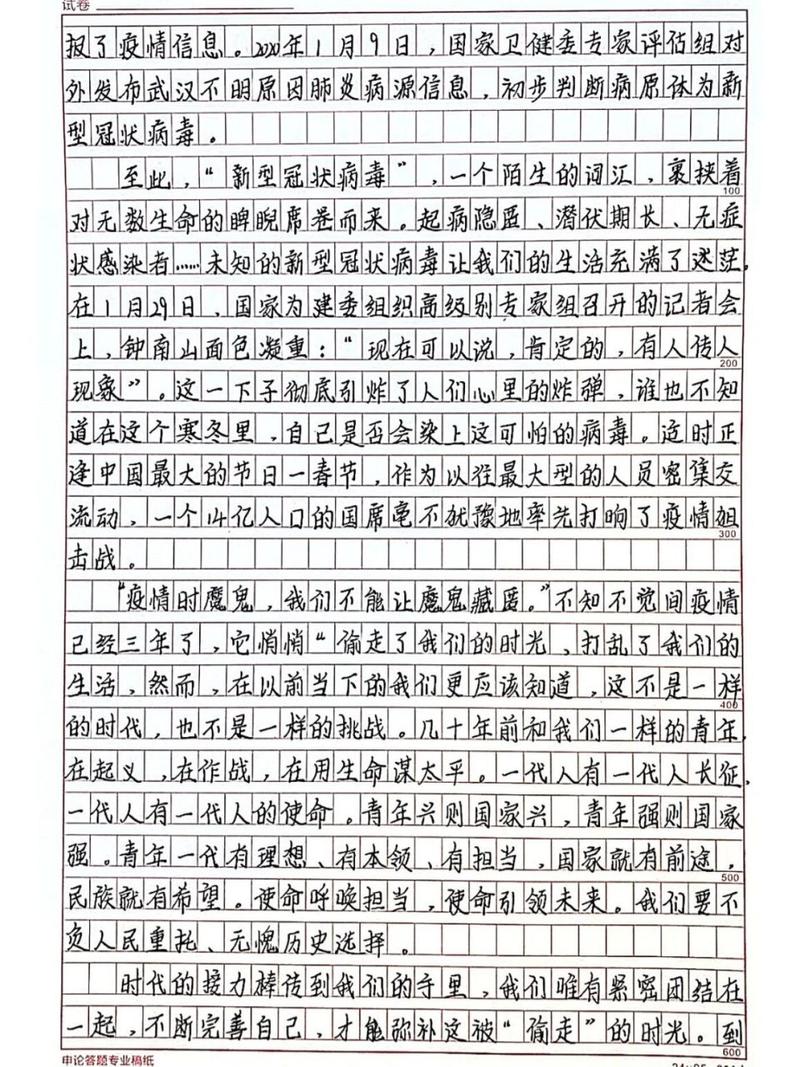 试卷
报了疫情信息。2020年1月9日，国家卫健委专家评估组对
外发布武汉不明原因肺炎病源信息，初步判断病原体为新
型冠状病毒。
至此，“新型冠状病毒”，一个陌生的词汇，裹挟着
100
对无数生命的睥睨席卷而来。起病隐匿、潜伏期长、无症
状感染者……未知的新型冠状病毒让我们的生活充满了迷茫，
在1月29日，国家为建委组织高级别专家组召开的记者会
上，钟南山面色凝重：“现在可以说，肯定的，有人传人
200
现象”。这一下子彻底引炸了人们心里的炸弹，谁也不知
道在这个寒冬里，自己是否会染上这可怕的病毒。这时正
逢中国最大的节日一春节，作为以往最大型的人员密集交
流动，一个14亿人口的国席毫不犹豫地率先打响了疫情狙
300
击战。
“疫情时魔鬼，我们不能让魔鬼藏匿。”不知不觉间疫情
已经三年了，它悄悄“偷走了我们的时光，打乱了我们的
生活，然而，在以前当下的我们更应该知道，这不是一样
400
的时代，也不是一样的挑战。几十年前和我们一样的青年，
在起义，在作战，在用生命谋太平。一代人有一代人长征，
一代人有一代人的使命。青年兴则国家兴，青年强则国家
强。青年一代有理想、有本领、有担当，国家就有前途，
500
民族就有希望。使命呼唤担当，使命引领未来。我们要不
负人民重托、无愧历史选择。
时代的接力棒传到我们的手里，我们唯有紧密团结在
一起，不断完善自己，才能弥补这被“偷走”的时光。到
600
申论答题专业稿纸